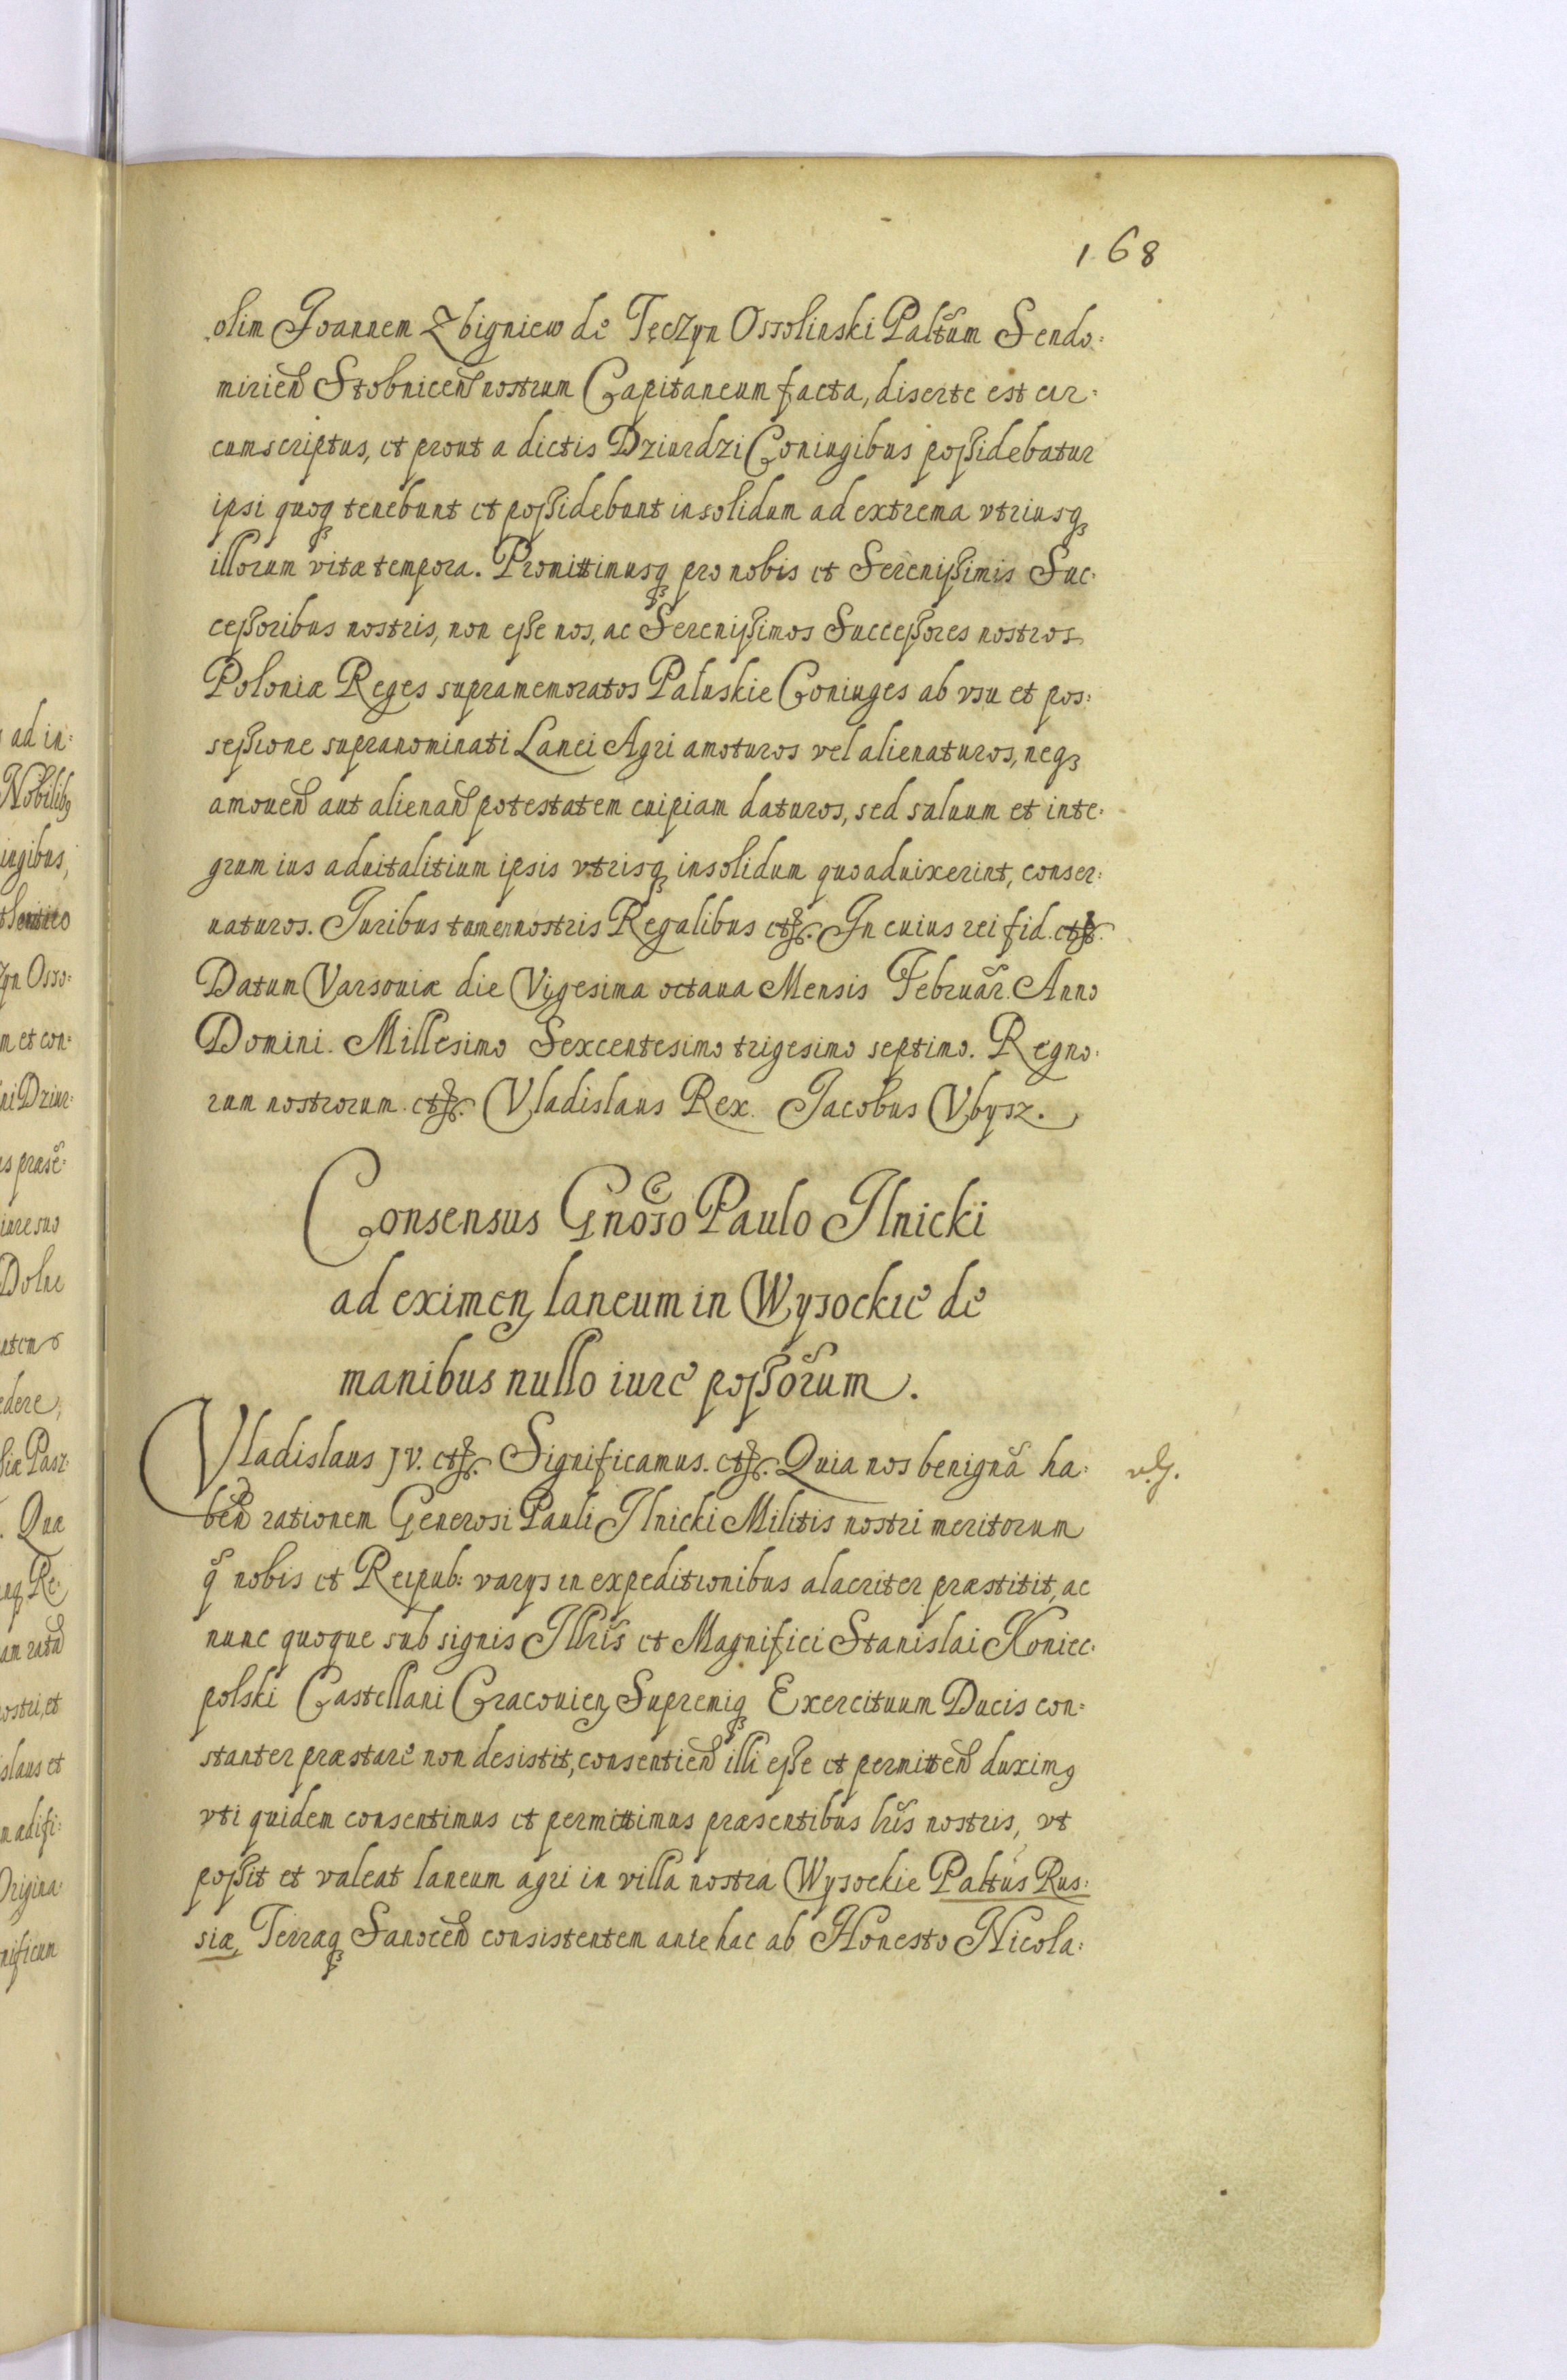 168
olim Joannem Zbigniew de Tęczyn Ossolinski Paltum Sendo:
mirien Stobnicen nostrum Capitaneum facta, diserte est cir:
cumscriptus, et prout a dictis Dziurdzi Coniugibus possidebatur
ipsi quoq tenebunt et possidebunt insolidum ad extrema vtriusq
illorum vitæ tempora. Promittimusq pro nobis et Serenissimis Suc:
cessoribus nostris, non esse nos, ac Serenissimos Successores nostros
Poloniæ Reges supramemoratos Paluskie Coniuges ab vsu et pos:
sessione supranominati Lanei Agri amoturos vel alienaturos, neq
amouen aut alienan potestatem cuipiam daturos, sed saluum et inte:
grum ius aduitalitium ipsis vtrisq insolidum quoaduixerint, conser:
uaturos. Juribus tamen nostris Regalibus etc. In cuius rei fid. etc.
Datum Varsouiæ die Vigesima octaua Mensis Februar. Anno
Domini. Millesimo Sexcentesimo trigesimo septimo. Regno:
rum nostrorum. etc. Vladislaus Rex. Jacobus Vbysz.
Consensus Gnoso Paulo Ilnicki
ad eximen laneum in Wysockie de
manibus nullo iure possorum.
Vladislaus IV. etc. Significamus. etc. Quia nos benignã ha:
ben rationem Generosi Pauli Ilnicki Militis nostri meritorum
q nobis et Reipub: varys in expeditionibus alacriter præstitit, ac
nunc quoque sub signis Illris et Magnifici Stanislai Koniec:
polski Castellani Cracouien Supremiq Exercituum Ducis con:
stanter præstare non desistit, consentien illi esse et permitten duximq
vti quidem consentimus et permittimus præsentibus lris nostris, vt
possit et valeat laneum agri in villa nostra Wysockie Paltus Rus:
siæ, Terraq Sanocen consistentem ante hac ab Honesto Nicola: